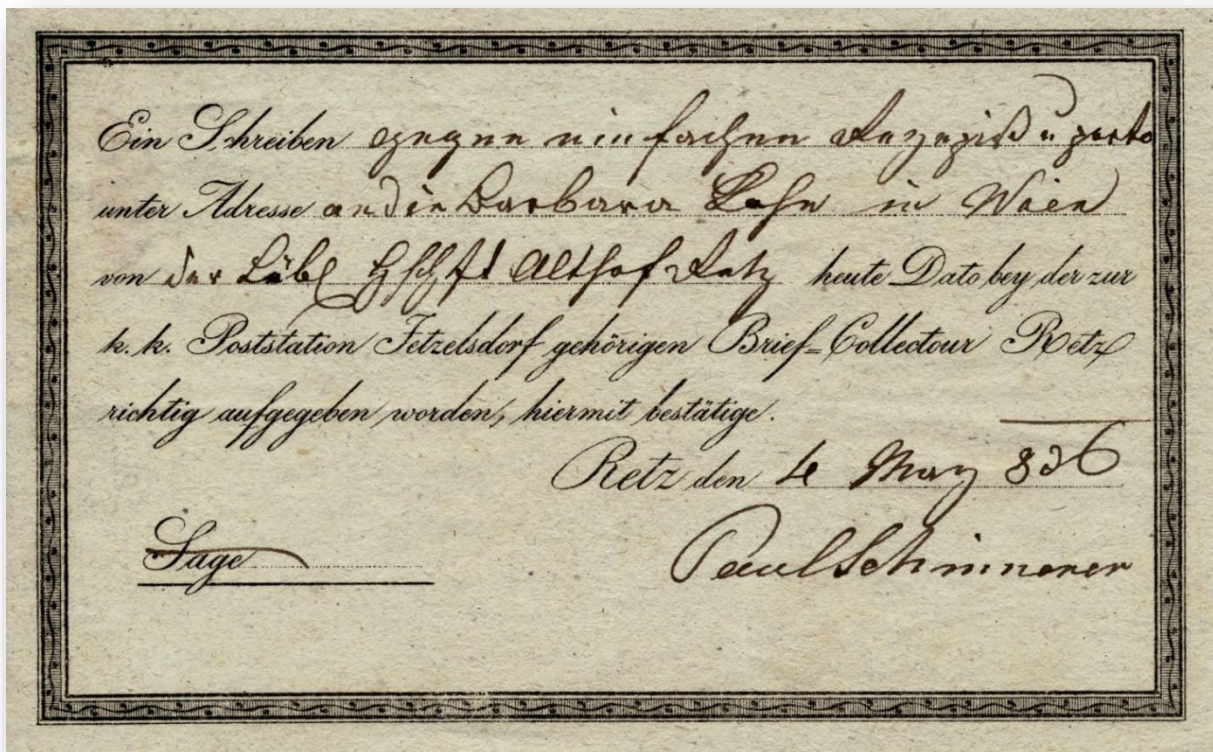 Ein Schreiben gegen einfachen Rezepiß u porto
unter Adresse an die Barbara in Wien
von der Löbl Hschft Althof Retz heute Dato bey der zur
k. k. Poststation Jetzelsdorf gehörigen Brief-Collectour Retz
richtig aufgegeben worden, hiermit bestätige.
Retz den 4 May 836
Sage
Paul Schimmerer